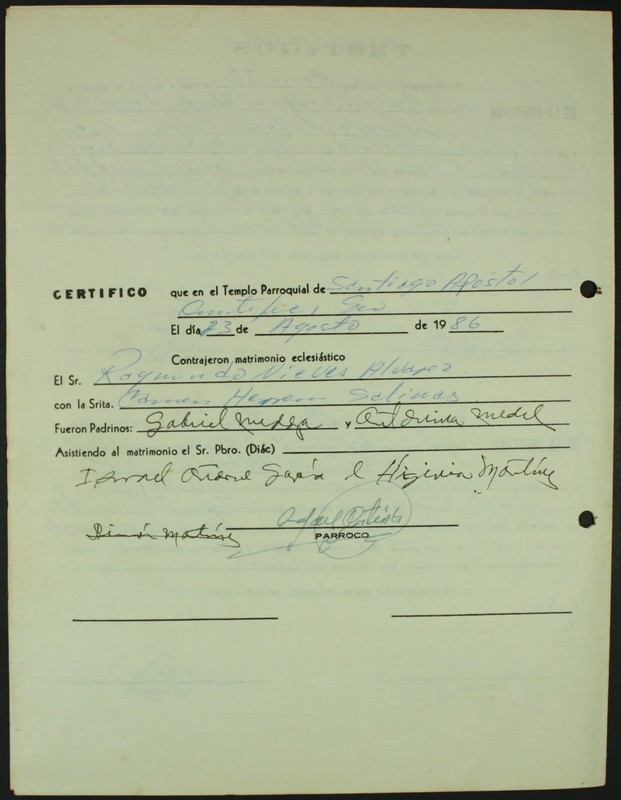 CERTIFICO que en el Templo Parroquial de Santiago Apóstol
Gro
El día 23 de Agosto de 1986
Contrajeron matrimonio eclesiástico
El Sr. Raymundo Nieves Alvarez
con la Srita. Carmen Herrera Salinas
Fueron Padrinos: Gabriel y Medel
Asistiendo al matrimonio el Sr. Pbro. (Diác)
García Higinia Martínez
Simón Martínez Rafael
PARROCO